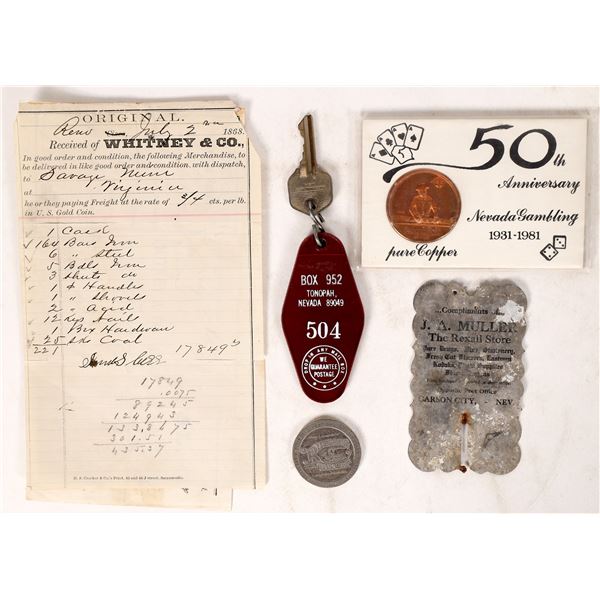 ORIGINAL.
Reno July 2nd 1868.
Received of WHITNEY & CO.,
In good order and condition, the following Merchandise, to
be delivered in like good order and condition, with dispatch,
to Savage Mine
Virginia
he or they paying Freight at the rate of 3/4 cts. per lb.
in U. S. Gold Coin.
1 Cask
164 Bars Iron
6 " Steel
5 Bdls Iron
3 Sheets do
1 " Handles
1 " Shovels
2 " Acid
12 Kegs Nails
1 Box Hardware
25 Coal
221 17849
17849
.0075
89245
124943
133.8675
301.51
435.37
BOX 952
TONOPAH,
NEVADA 89049
504
DROP IN ANY MAIL BOX
WE
GUARANTEE
POSTAGE
50th
Anniversary
Nevada Gambling
1931-1981
pure Copper
Compliments
J. A. MULLER
The Rexall Store
Pure Drugs, Stationery,
Eastern
Kodaks, Supplies
Opposite Post Office
CARSON CITY, - NEV.